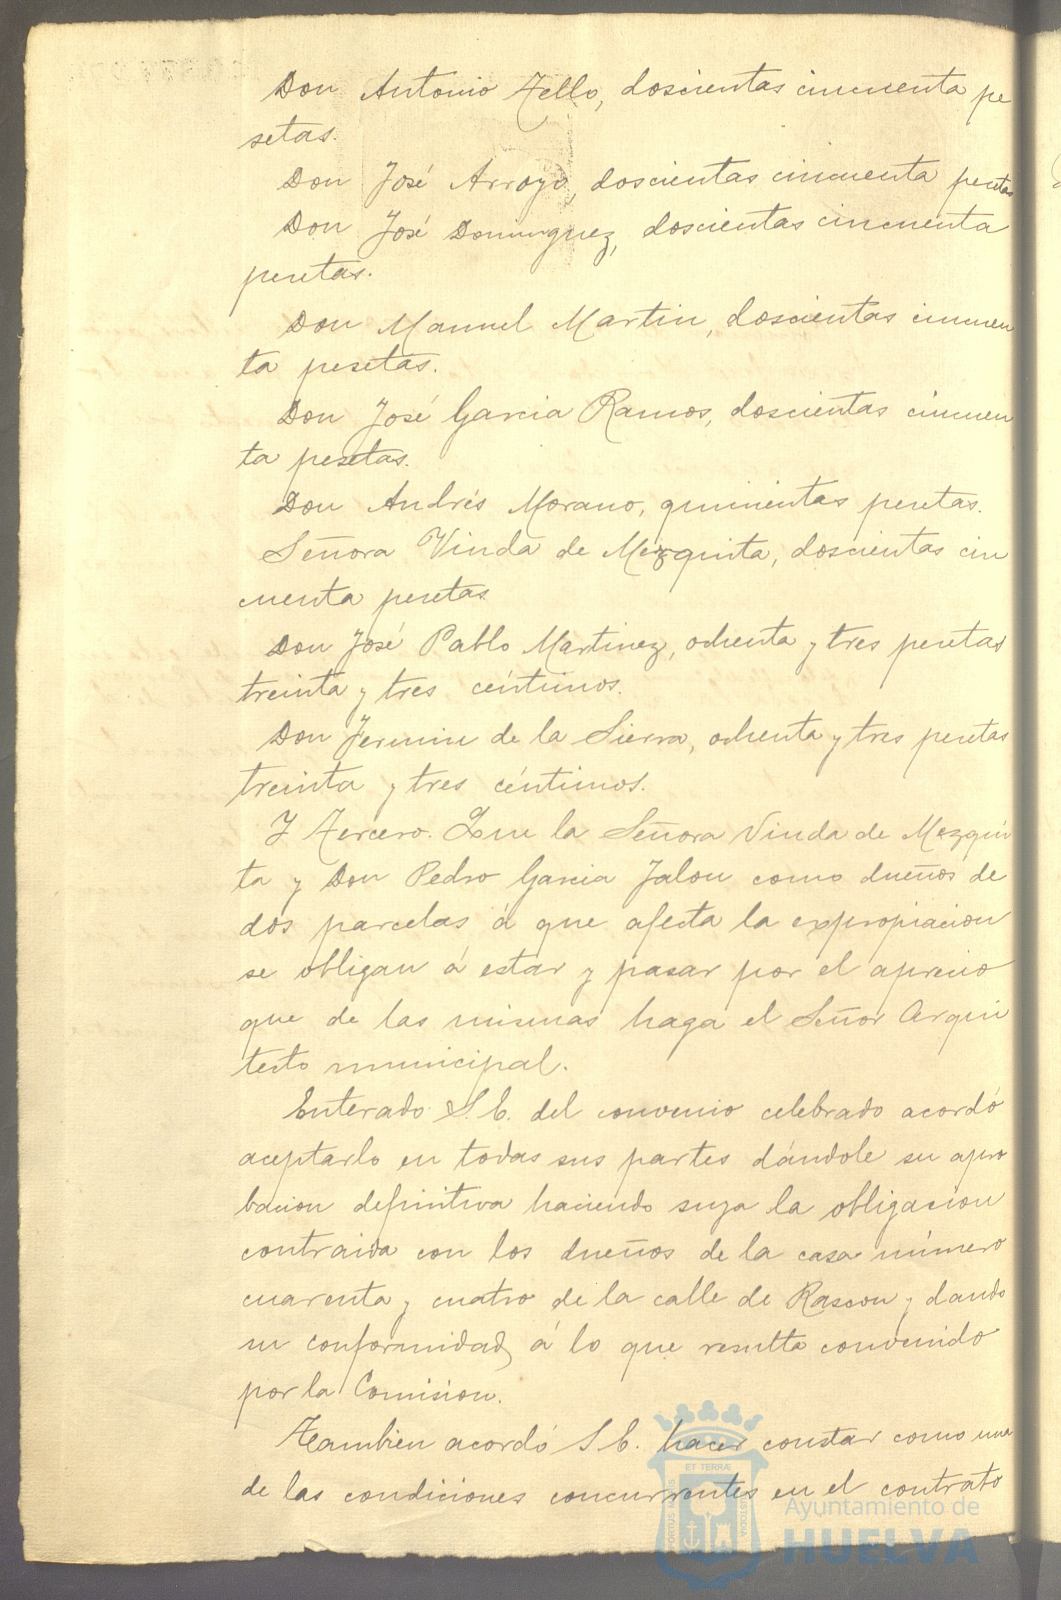 Don Antonio Tello, doscientas cincuenta pe
setas.
Don José Arroyo, doscientas cincuenta pesetas
Don José Dominguez, doscientas cincuenta
pesetas.
Don Manuel Martin, doscientas cincuen
ta pesetas.
Don José Garcia Ramos, doscientas cincuen
ta pesetas.
Don Andrés Morano, quinientas pesetas.
Señora Viuda de Mezquita, doscientas cin
cuenta pesetas
Don José Pablo Martinez, ochenta y tres pesetas
treinta y tres céntimos.
Don Fermin de la Sierra, ochenta y tres pesetas
treinta y tres céntimos.
Y Tercero. Que la Señora Viuda de Mezqui
ta y Don Pedro Garcia Jalon como dueños de
dos parcelas á que afecta la expropiacion
se obligan á estar y pasar por el aprecio
que de las mismas haga el Señor Arqui
tecto municipal.
Enterado S.E. del convenio celebrado acordó
aceptarlo en todas sus partes dándole su apro
bacion definitiva haciendo suya la obligacion
contraida con los dueños de la casa número
cuarenta y cuatro de la calle de Rascon y dando
su conformidad á lo que resulta convenido
por la Comision.
Tambien acordó S.E. hacer constar como una
de las condiciones concurrentes en el contrato
ET TERRÆ
PORTUS MARIS
CUSTODIA
Ayuntamiento de
HUELVA